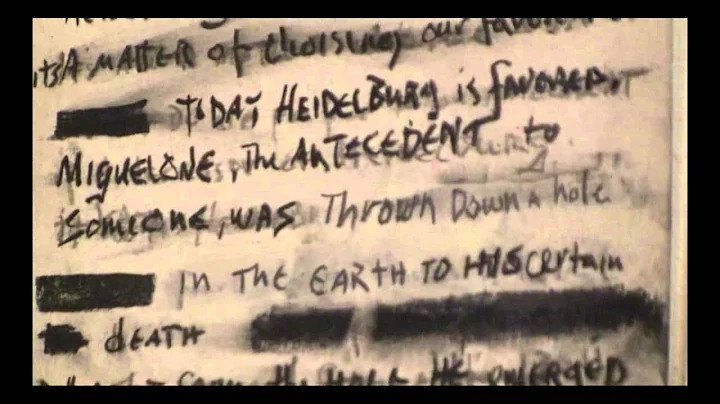 its A MATTER of choising our favor
TODAY HEIDELBURG is fAVORED.
MIGUELONE, The ANTECEDENT to
SOMEONE, WAS Thrown Down A hole
IN THE EARTH TO HIS certain
dEATH
from the HOLE HE EMERGED